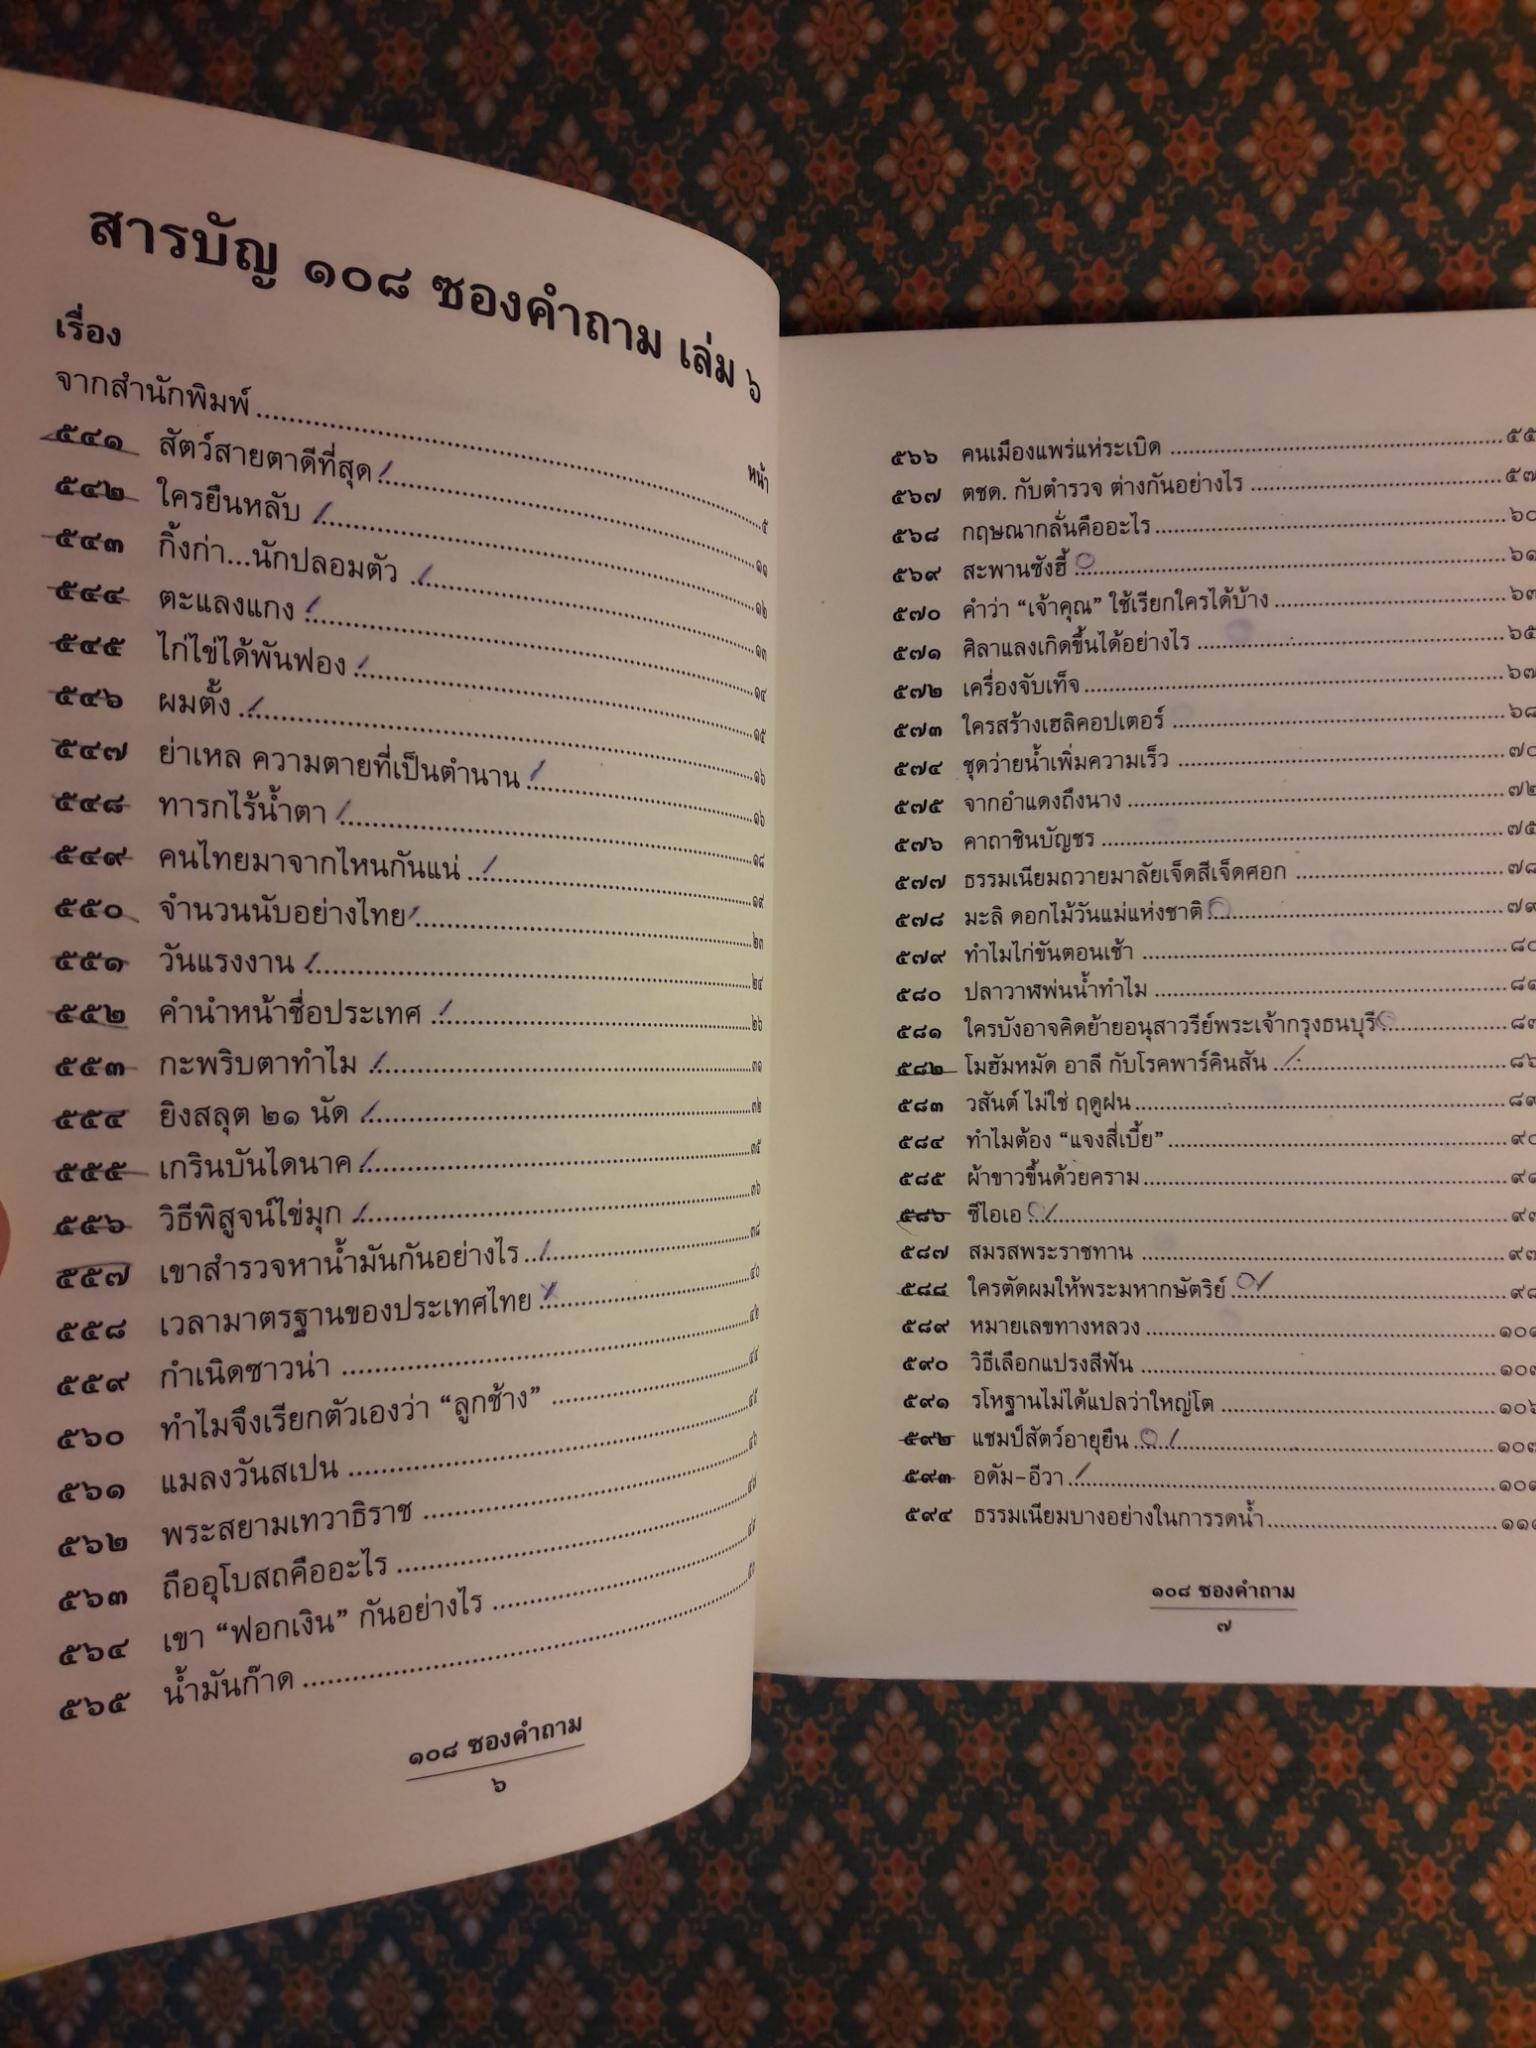 สารบัญ ๑๐๘ ซองคำถาม เล่ม ๖
เรื่อง หน้า
จากสำนักพิมพ์ ๕
๕๔๑ สัตว์สายตาดีที่สุด ๑๑
๕๔๒ ใครยืนหลับ ๑๒
๕๔๓ กิ้งก่า...นักปลอมตัว ๑๓
๕๔๔ ตะแลงแกง ๑๔
๕๔๕ ไก่ไข่ได้พันฟอง ๑๕
๕๔๖ ผมตั้ง ๑๖
๕๔๗ ย่าเหล ความตายที่เป็นตำนาน ๑๖
๕๔๘ ทารกไร้น้ำตา ๑๘
๕๔๙ คนไทยมาจากไหนกันแน่ ๑๙
๕๕๐ จำนวนนับอย่างไทย ๒๓
๕๕๑ วันแรงงาน ๒๔
๕๕๒ คำนำหน้าชื่อประเทศ ๒๖
๕๕๓ กะพริบตาทำไม ๓๑
๕๕๔ ยิงสลุต ๒๑ นัด ๓๒
๕๕๕ เกรินบันไดนาค ๓๕
๕๕๖ วิธีพิสูจน์ไข่มุก ๓๖
๕๕๗ เขาสำรวจหาน้ำมันกันอย่างไร ๓๘
๕๕๘ เวลามาตรฐานของประเทศไทย ๔๐
๕๕๙ กำเนิดซาวน่า ๔๒
๕๖๐ ทำไมจึงเรียกตัวเองว่า “ลูกช้าง” ๔๔
๕๖๑ แมลงวันสเปน ๔๕
๕๖๒ พระสยามเทวาธิราช ๔๖
๕๖๓ ถืออุโบสถคืออะไร
๕๖๔ เขา “ฟอกเงิน” กันอย่างไร
๕๖๕ น้ำมันก๊าด
๑๐๘ ซองคำถาม
๖
๕๖๖ คนเมืองแพร่แห่ระเบิด ๕๕
๕๖๗ ตชด. กับตำรวจ ต่างกันอย่างไร ๕๗
๕๖๘ กฤษณากลั่นคืออะไร ๖๐
๕๖๙ สะพานซังฮี้ ๖๑
๕๗๐ คำว่า “เจ้าคุณ” ใช้เรียกใครได้บ้าง ๖๓
๕๗๑ ศิลาแลงเกิดขึ้นได้อย่างไร ๖๕
๕๗๒ เครื่องจับเท็จ ๖๗
๕๗๓ ใครสร้างเฮลิคอปเตอร์ ๖๘
๕๗๔ ชุดว่ายน้ำเพิ่มความเร็ว ๗๐
๕๗๕ จากอำแดงถึงนาง ๗๒
๕๗๖ คาถาชินบัญชร ๗๕
๕๗๗ ธรรมเนียมถวายมาลัยเจ็ดสีเจ็ดศอก ๗๘
๕๗๘ มะลิ ดอกไม้วันแม่แห่งชาติ ๗๙
๕๗๙ ทำไมไก่ขันตอนเช้า ๘๐
๕๘๐ ปลาวาฬพ่นน้ำทำไม ๘๑
๕๘๑ ใครบังอาจคิดย้ายอนุสาวรีย์พระเจ้ากรุงธนบุรี ๘๓
๕๘๒ โมฮัมหมัด อาลี กับโรคพาร์คินสัน ๘๖
๕๘๓ วสันต์ ไม่ใช่ ฤดูฝน ๘๙
๕๘๔ ทำไมต้อง “แจงสี่เบี้ย” ๙๐
๕๘๕ ผ้าขาวขึ้นด้วยคราม ๙๑
๕๘๖ ซีไอเอ ๙๓
๕๘๗ สมรสพระราชทาน ๙๓
๕๘๘ ใครตัดผมให้พระมหากษัตริย์ ๙๘
๕๘๙ หมายเลขทางหลวง ๑๐๑
๕๙๐ วิธีเลือกแปรงสีฟัน ๑๐๓
๕๙๑ รโหฐานไม่ได้แปลว่าใหญ่โต ๑๐๖
๕๙๒ แชมป์สัตว์อายุยืน ๑๐๗
๕๙๓ อดัม-อีวา
๕๙๔ ธรรมเนียมบางอย่างในการรดน้ำ ๑๑๑
๑๐๘ ซองคำถาม
๗